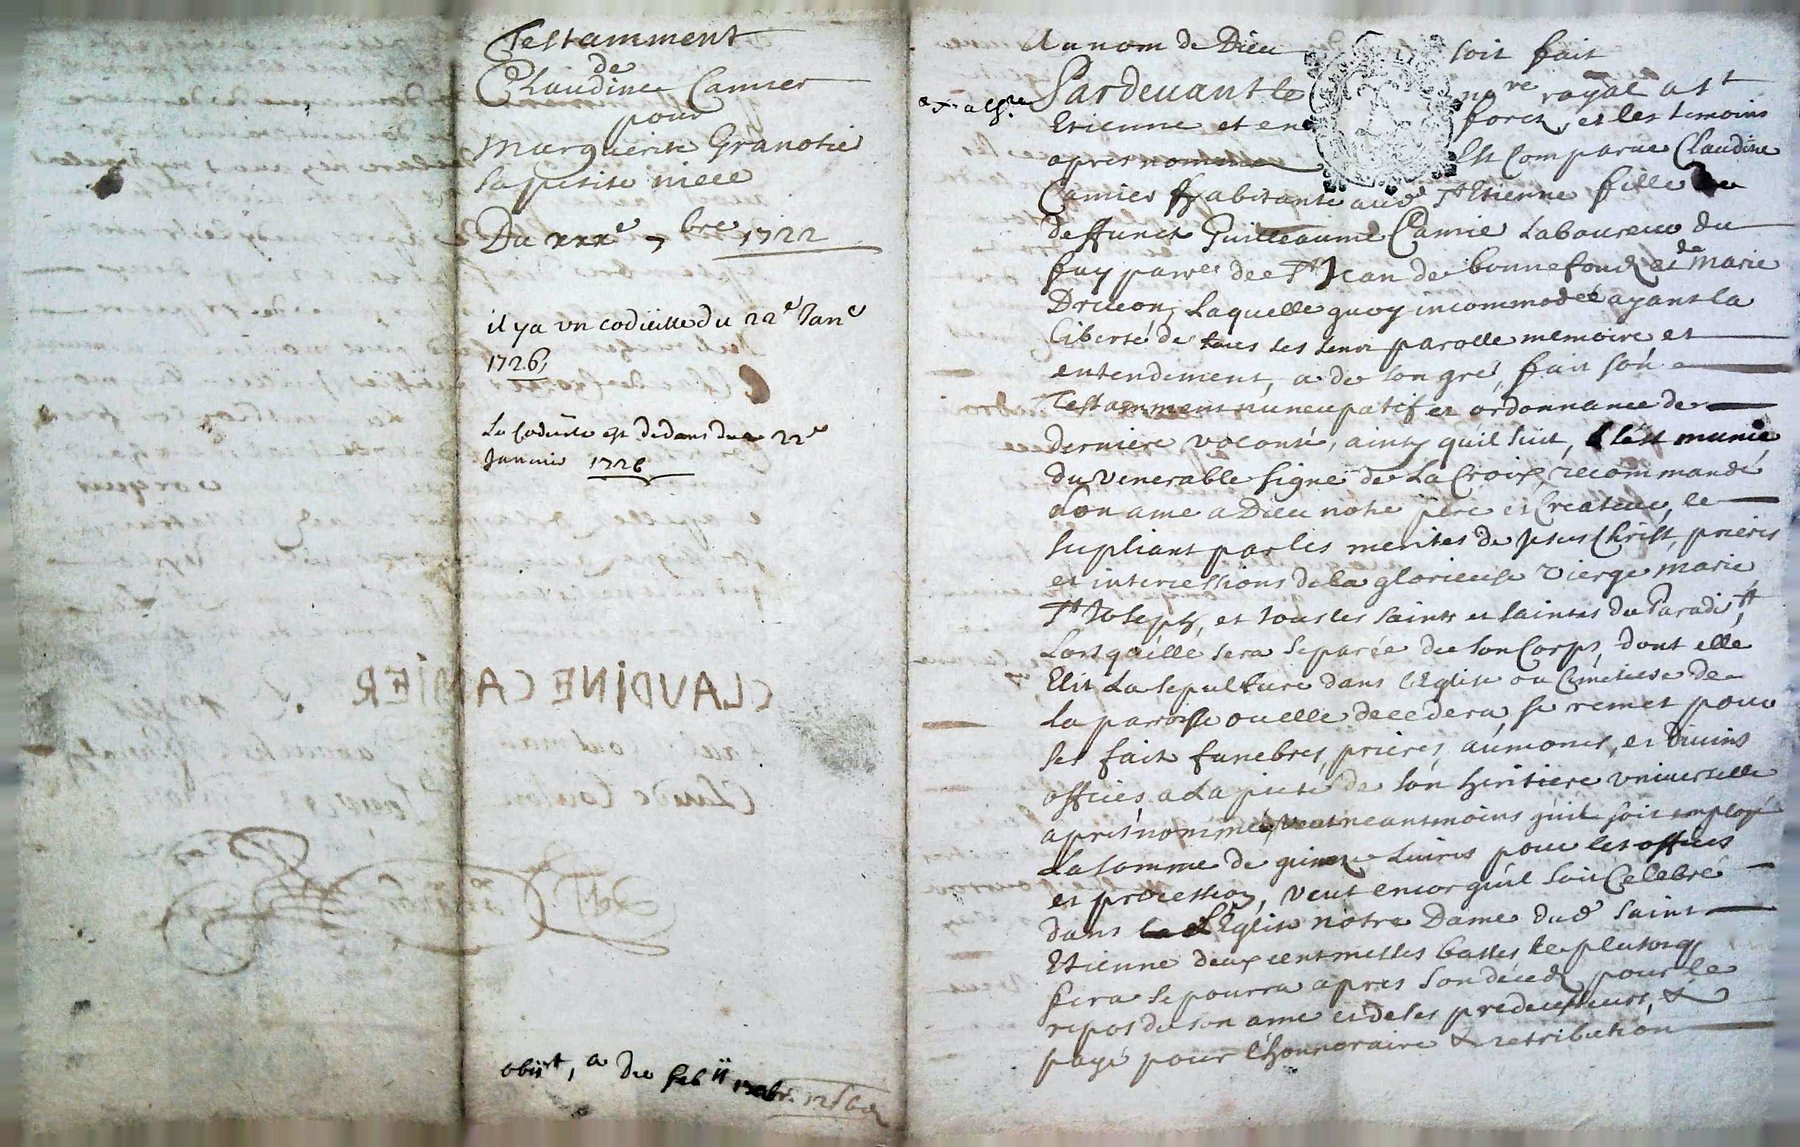 Testamment
de
Claudine Camier
pour
Marguerite Granotier
sa petite niece
Du xxxe 7bre 1722
il y a un codicille du 22e Janr
1726,
Le Codicile est dedans du 22e
Janvier 1726
obiit, a die feb
Au nom de Dieu soit fait
Pardevant le nore royal a St
Etienne et en forez, et les temoins
apres nommes Est Comparue Claudine
Camier habitante aud St Etienne fille de
deffunct Guilleaume Camie Laboureur du
fay parre de St Jean de bonnefondz et de Marie
Drivon, Laquelle quoy incommodée ayant la
liberté de tous ses sens parolle memoire et
entendement, a de son gré, fait son
Testamment nuncupatif et ordonnance de
derniere volonté, ainsy qu'il suit, s'est munie
du venerable signe de La Croix, recommandé
son ame a Dieu notre pere et Createur, le
supliant par les merites de Jesus Christ, prieres
et intercessions de la glorieuse vierge marie
St Joseph, et tous les saints et saintes du Paradis,
Lorsqu'elle sera separée de son Corps, dont elle
Elit La sepulture dans l'Eglise ou Cimetiere de
La paroisse ou elle decedera, se remet pour
ses fait funebres, prieres, aumones, et Divins
offices, a La pieté de son heritiere universelle
apres nommée, veut neantmoins qu'il soit employé
La somme de quinze Livres pour les offices
et procession, veut encor qu'il soit Celebré
dans L'Eglise notre Dame dud saint
Etienne deux cent messes basses le plustot q
fera se pourra apres son décedz pour le
repos de son ame et de ses predecesseurs, &
payé pour l'honnoraire & retribution
CLAUDINE CAMIER